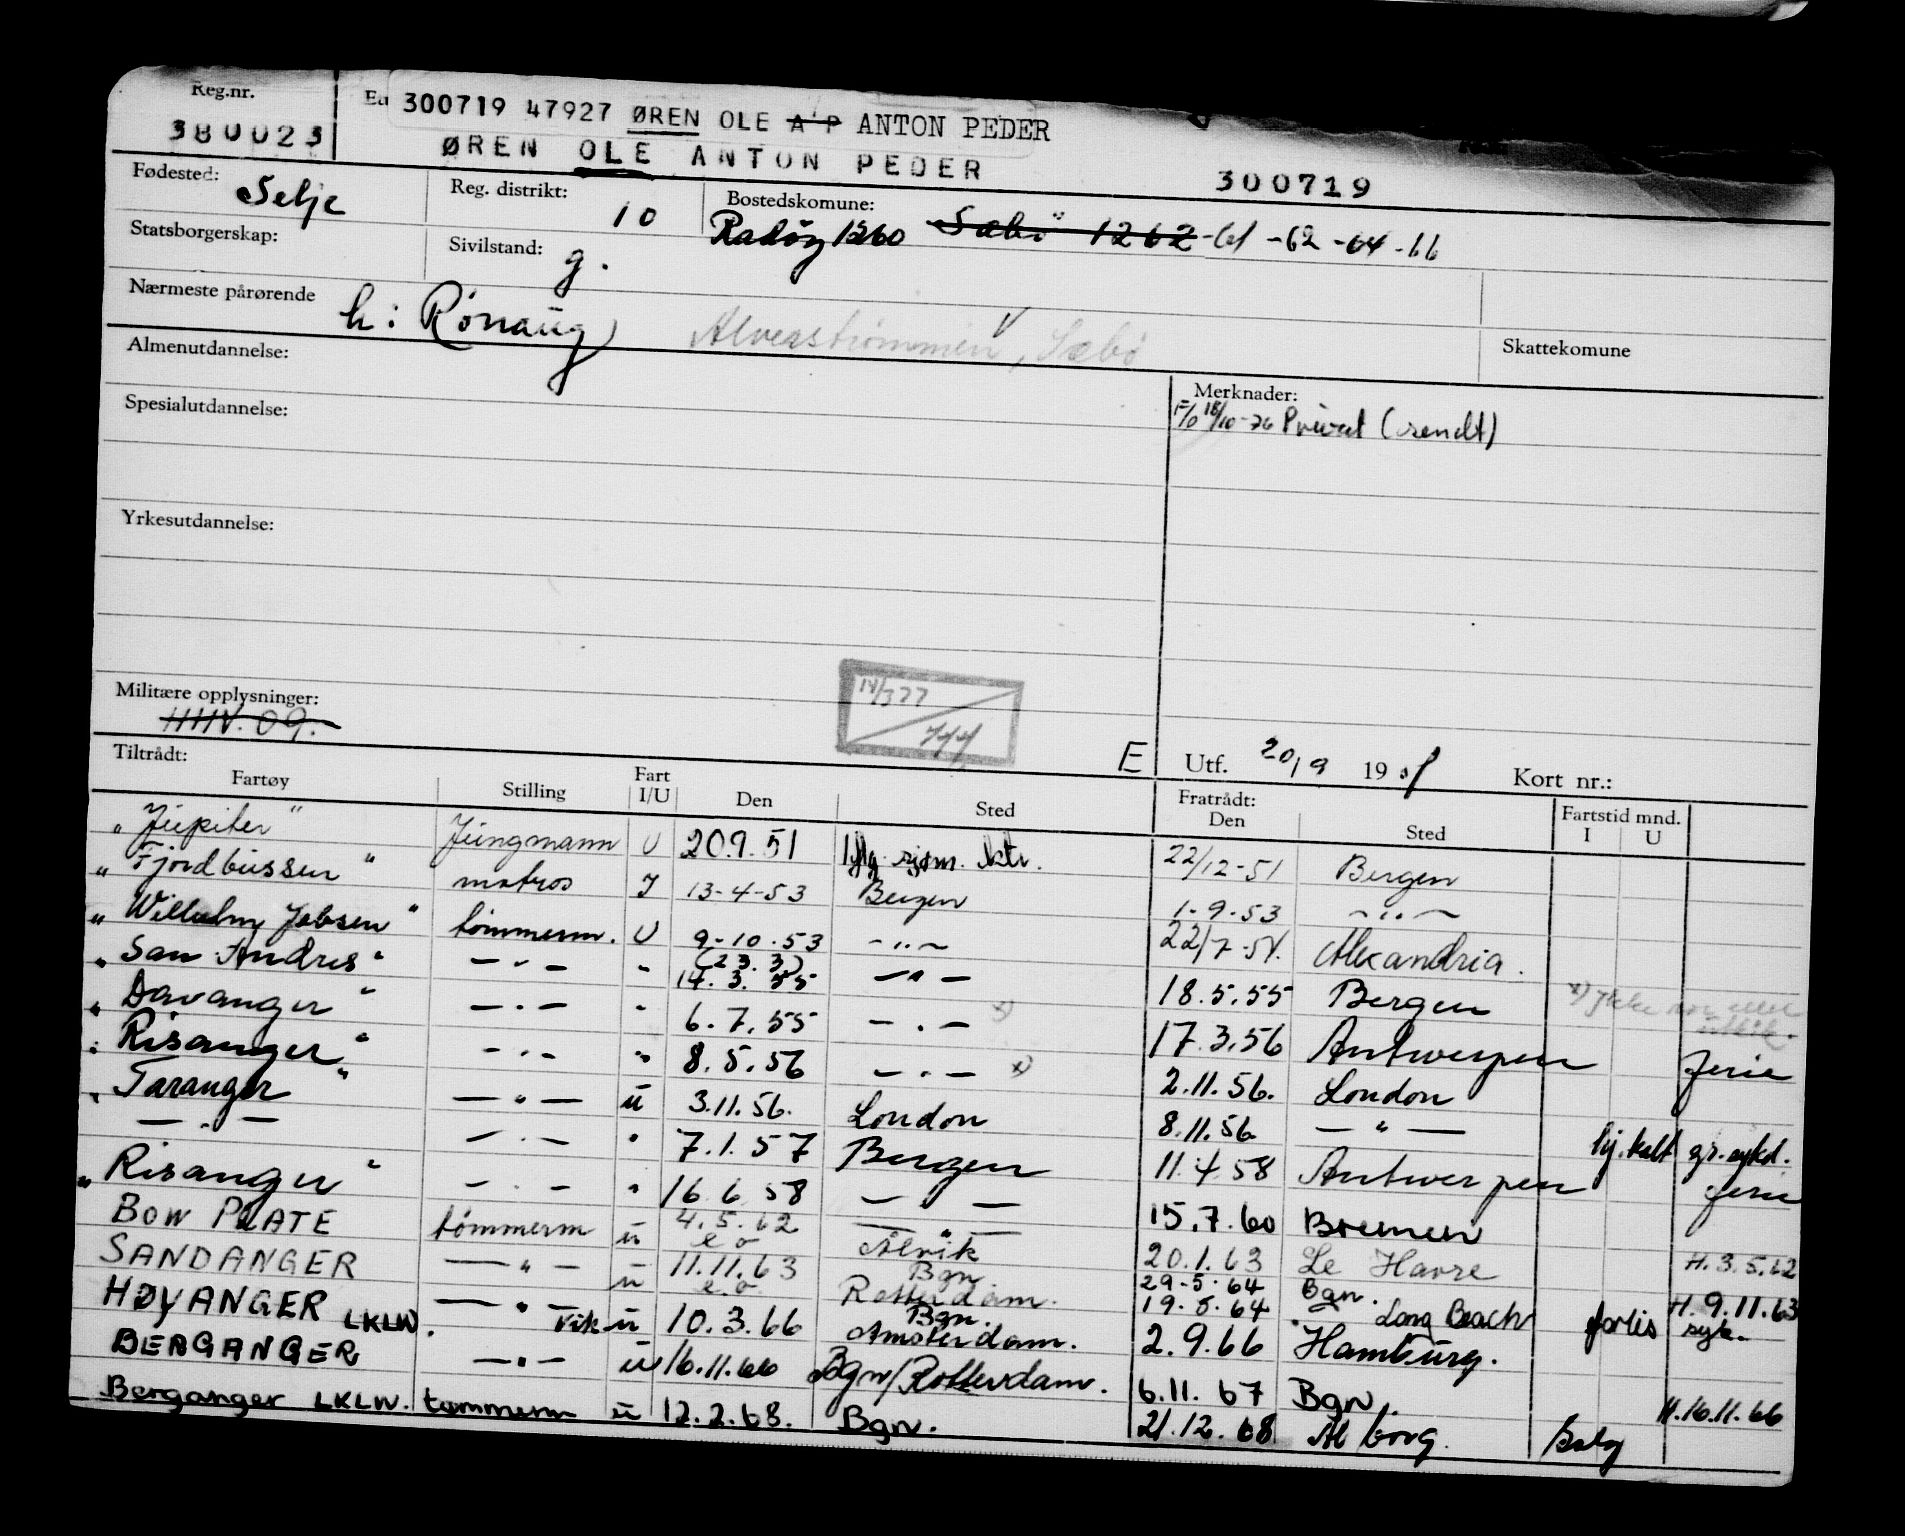 Reg.nr.
380023
300719 47927 ØREN OLE A P ANTON PEDER
ØREN OLE ANTON PEDER 300719
Fødested: Selje Reg. distrikt: 10 Bostedskomune: Radøy 1260 Sæbø 1262 -61 -62 -64 -66
Statsborgerskap: Sivilstand: g.
Nærmeste pårørende h: Rønaug Alverstrømmen, Sæbø
Skattekomune
Almenutdannelse:
Merknader:
F/O 18/10-76 Privat (sendt)
Spesialutdannelse:
Yrkesutdannelse:
Militære opplysninger:
Tiltrådt: E Utf. 20/9 19 51 Kort nr.:
Fartøy Stilling Fart I/U Den Sted Fratrådt: Den Sted Fartstid mnd. I U
"Jupiter" Jungmann U 20.9.51 22/12-51 Bergen
"Fjordbussen" matros I 13-4-53 Bergen 1-9-53 — " —
"Wilhelm Jebsen" tømmerm. U 9-10-53 — " — 22/7-54. Alexandria.
"San Andres" — " — " (23.3) 14.3.55 — " — 18.5.55 Bergen
"Davanger" — " — " 6.7.55 — " — x) 17.3.56 Antwerpen ferie
"Risanger" — " — " 8.5.56 — " — x) 2.11.56. London
"Taranger" — " — u 3.11.56. London 8.11.56 — " — hj.kalt gr. sykd.
— " — — " — " 7.1.57 Bergen 11.4.58 Antwerpen ferie
"Risanger" — " — " 16.6.58 — " — 15.7.60 Bremen
BOW PLATE tømmerm u 4.5.62 Ålvik 20.1.63 Le Havre H. 3.5.62
SANDANGER — " — u 11.11.63 Bgn. Rotterdam. 29-5-64 Bgn. 19.8.64 Long Beach forlis syk. H. 9.11.63
HØYANGER LKLW. — " — Vik u 10.3.66 Bgn. Amsterdam. 2.9.66 Hamburg.
BERGANGER — " — u 16.11.66 Bgn/Rotterdam. 6.11.67 Bgn. H.16.11.66
Berganger LKLW. tømmerm u 12.2.68. Bgn. 21.12.68 Ålborg.